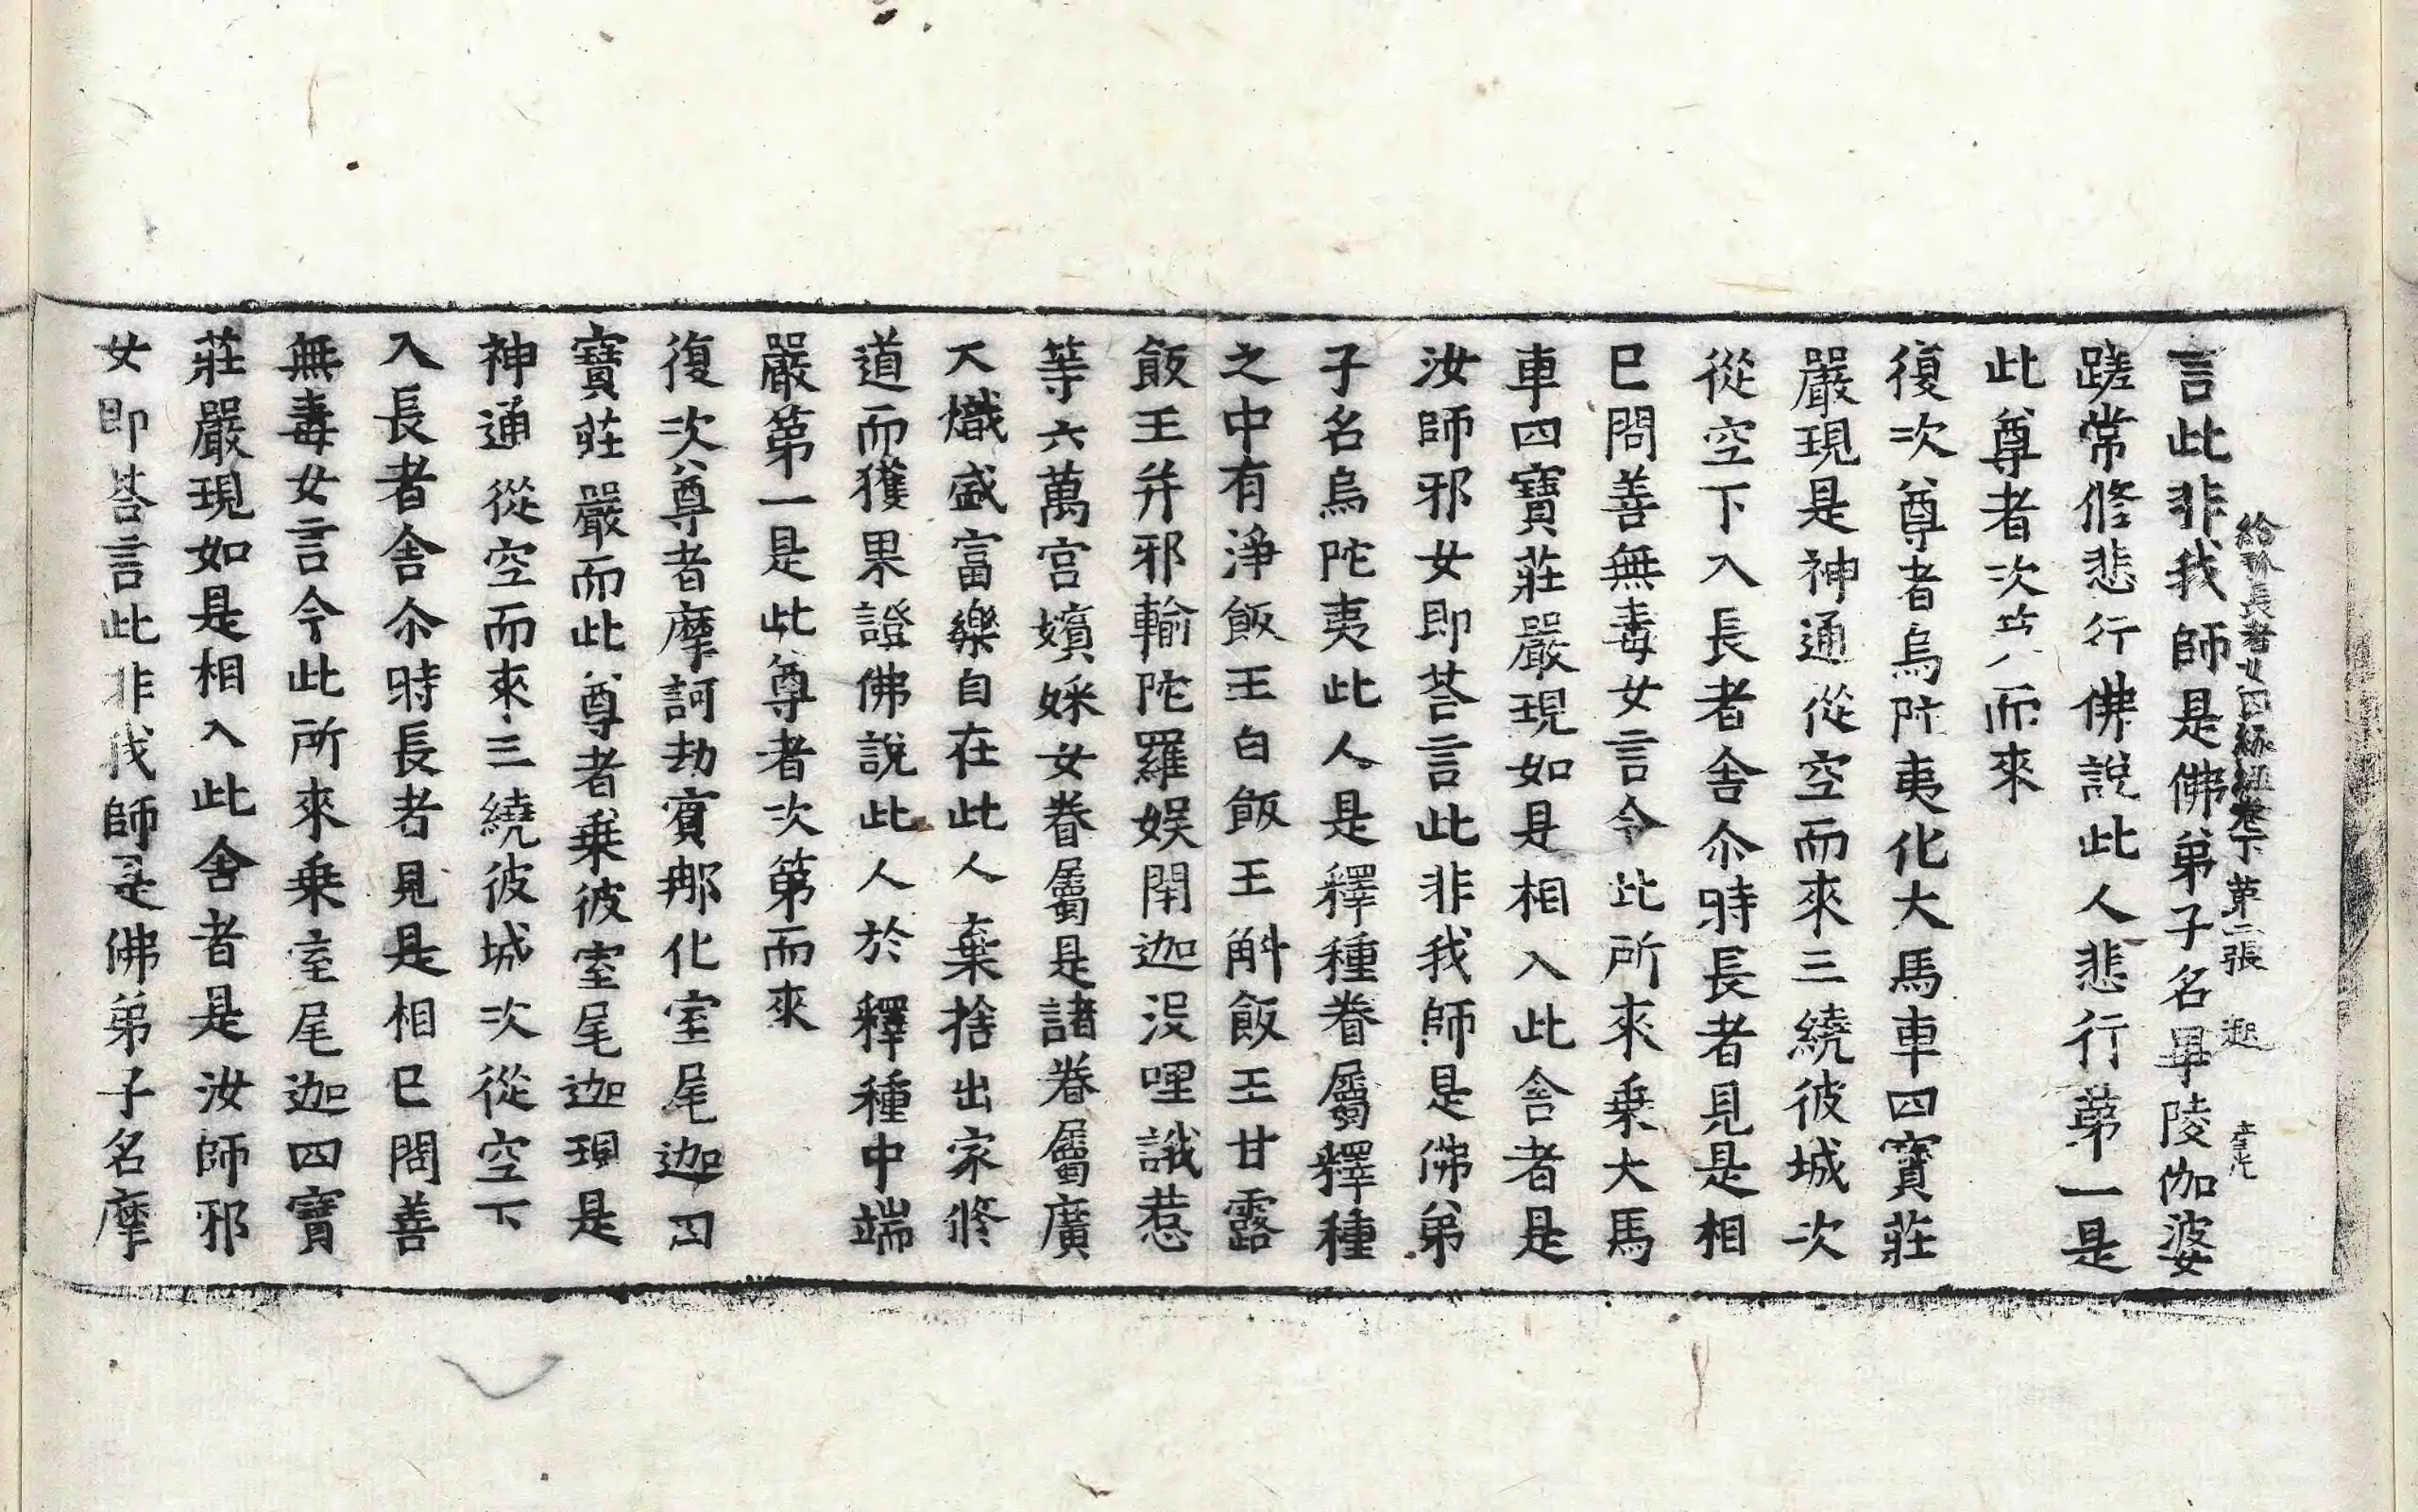 言此非我師是佛弟子名畢陵伽婆
蹉常修悲行佛說此人悲行第一是
此尊者次第而來
復次尊者烏陁夷化大馬車四寶莊
嚴現是神通從空而來三繞彼城次
從空下入長者舍尒時長者見是相
已問善無毒女言今此所來乗大馬
車四寶莊嚴現如是相入此舍者是
汝師邪女即荅言此非我師是佛弟
子名烏陁夷此人是釋種眷屬釋種
之中有淨飯王白飯王斛飯王甘露
飯王并邪輸陁羅娱閇迦没哩誐惹
等六萬宮嬪婇女眷屬是諸眷屬廣
大熾盛富樂自在此人棄捨出家修
道而獲果證佛說此人於釋種中端
嚴第一是此尊者次第而來
復次尊者摩訶劫賓那化室尾迦四
寶莊嚴而此尊者乗彼室尾迦現是
神通從空而來三繞彼城次從空下
入長者舍尒時長者見是相已問善
無毒女言今此所來乗室尾迦四寶
莊嚴現如是相入此舍者是汝師邪
女即荅言此非我師是佛弟子名摩
給孤長者女因緣經卷下 第二張 趣